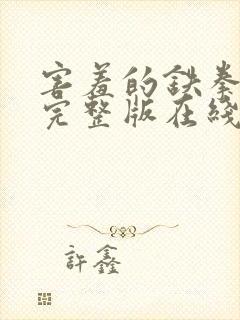 害羞的铁拳
完整版在线
許鑫